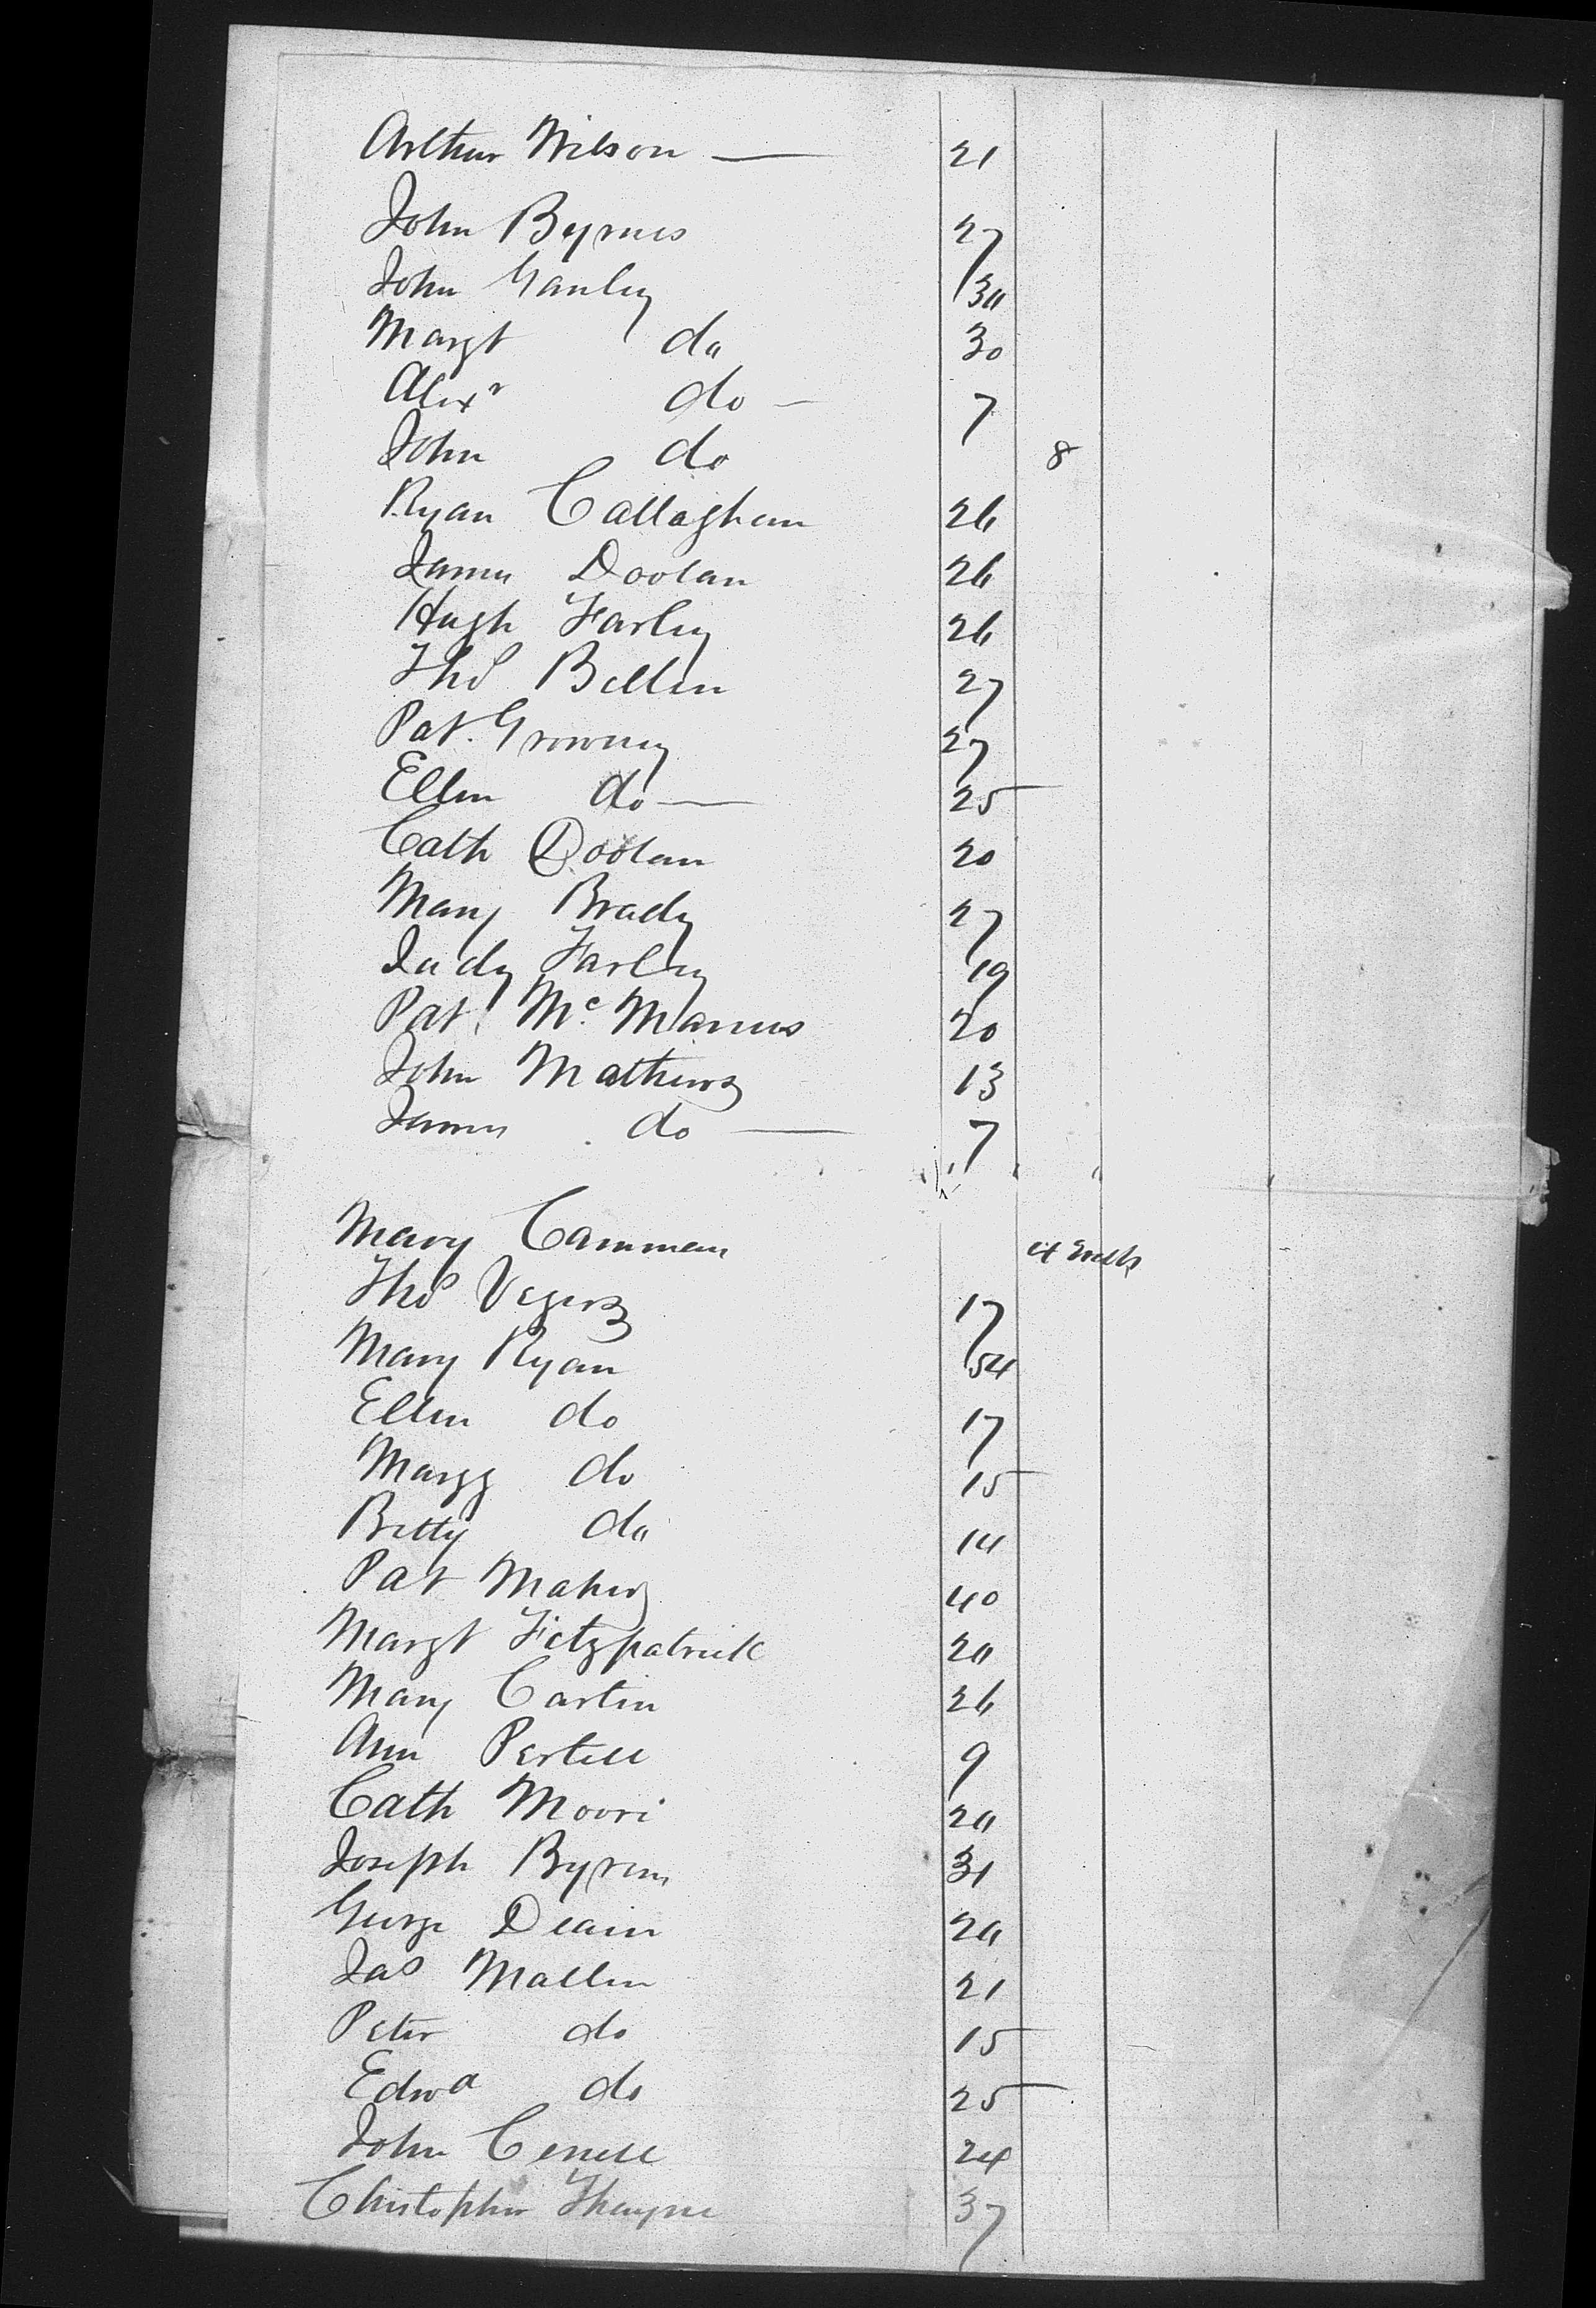 Arthur Wilson — 21
John Byrnes 27
John Ganley 30
Margt do 30
Alexr do — 7
John do 8
Ryan Callaghan 26
James Doolan 26
Hugh Farley 26
Thos Bellen 27
Pat. Growney 27
Ellen do — 25
Cath Doolan 20
Mary Brady 27
Judy Farley 19
Pat. Mc Manus 20
John Mathews 13
James do — 7
Mary Camman 4
Thos Vegers 17
Mary Ryan 54
Ellen do 17
Margg do 15
Betty do 14
Pat Maher 40
Margt Fitzpatrick 20
Mary Cartin 26
Ann Pertell 9
Cath Moore 20
Joseph Byrne 31
George Deain 20
Jas Mallen 21
Peter do 15
Edwd do 25
John 24
Christopher Thayne 37